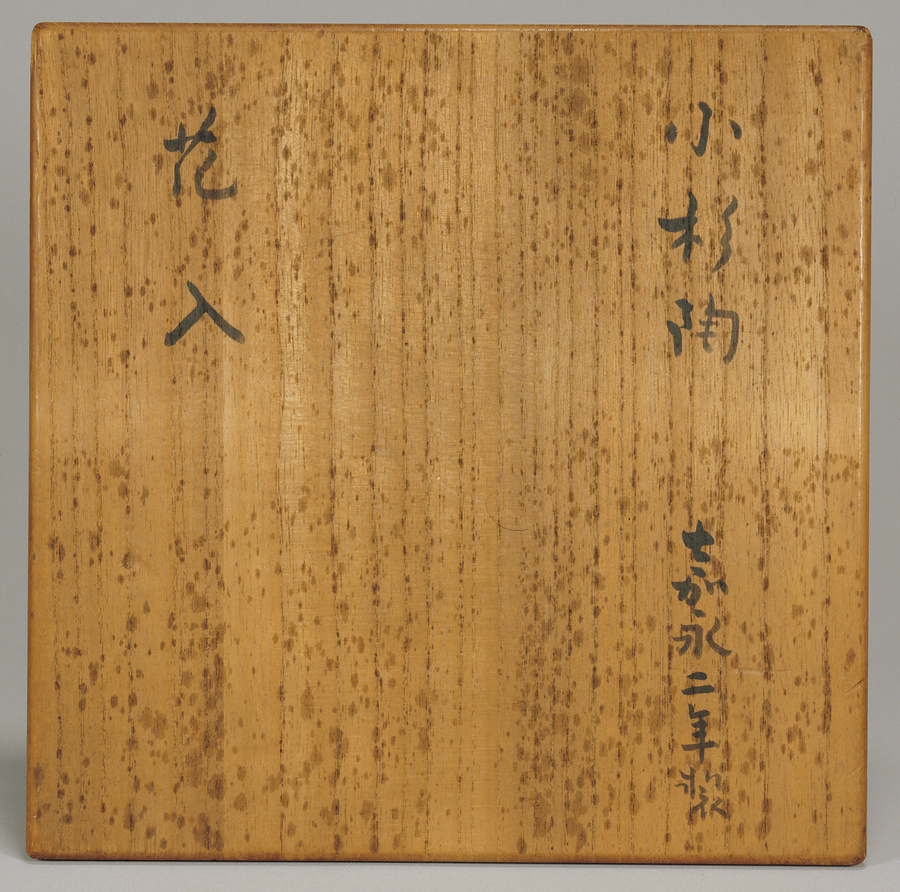 小杉陶 嘉永二年
花入